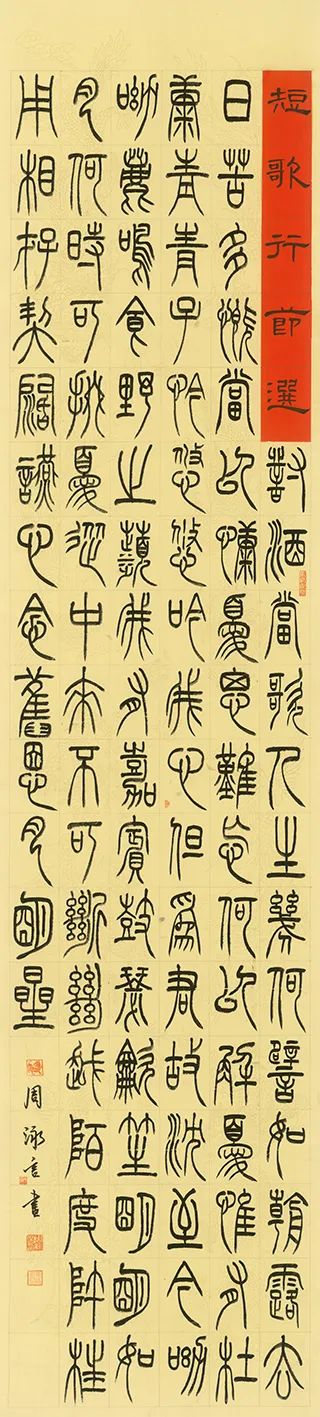 短歌行節選
對酒當歌人生幾何譬如朝露去
日苦多慨當以慷憂思難忘何以解憂惟有杜
康青青子衿悠悠吟我心但爲君故沈至今呦
呦鹿鳴食野之蘋我有嘉賓鼓瑟龡笙明明如
月何時可掇憂從中來不可斷絕越陌度阡枉
用相存契闊讌心念舊恩月明星
周言書